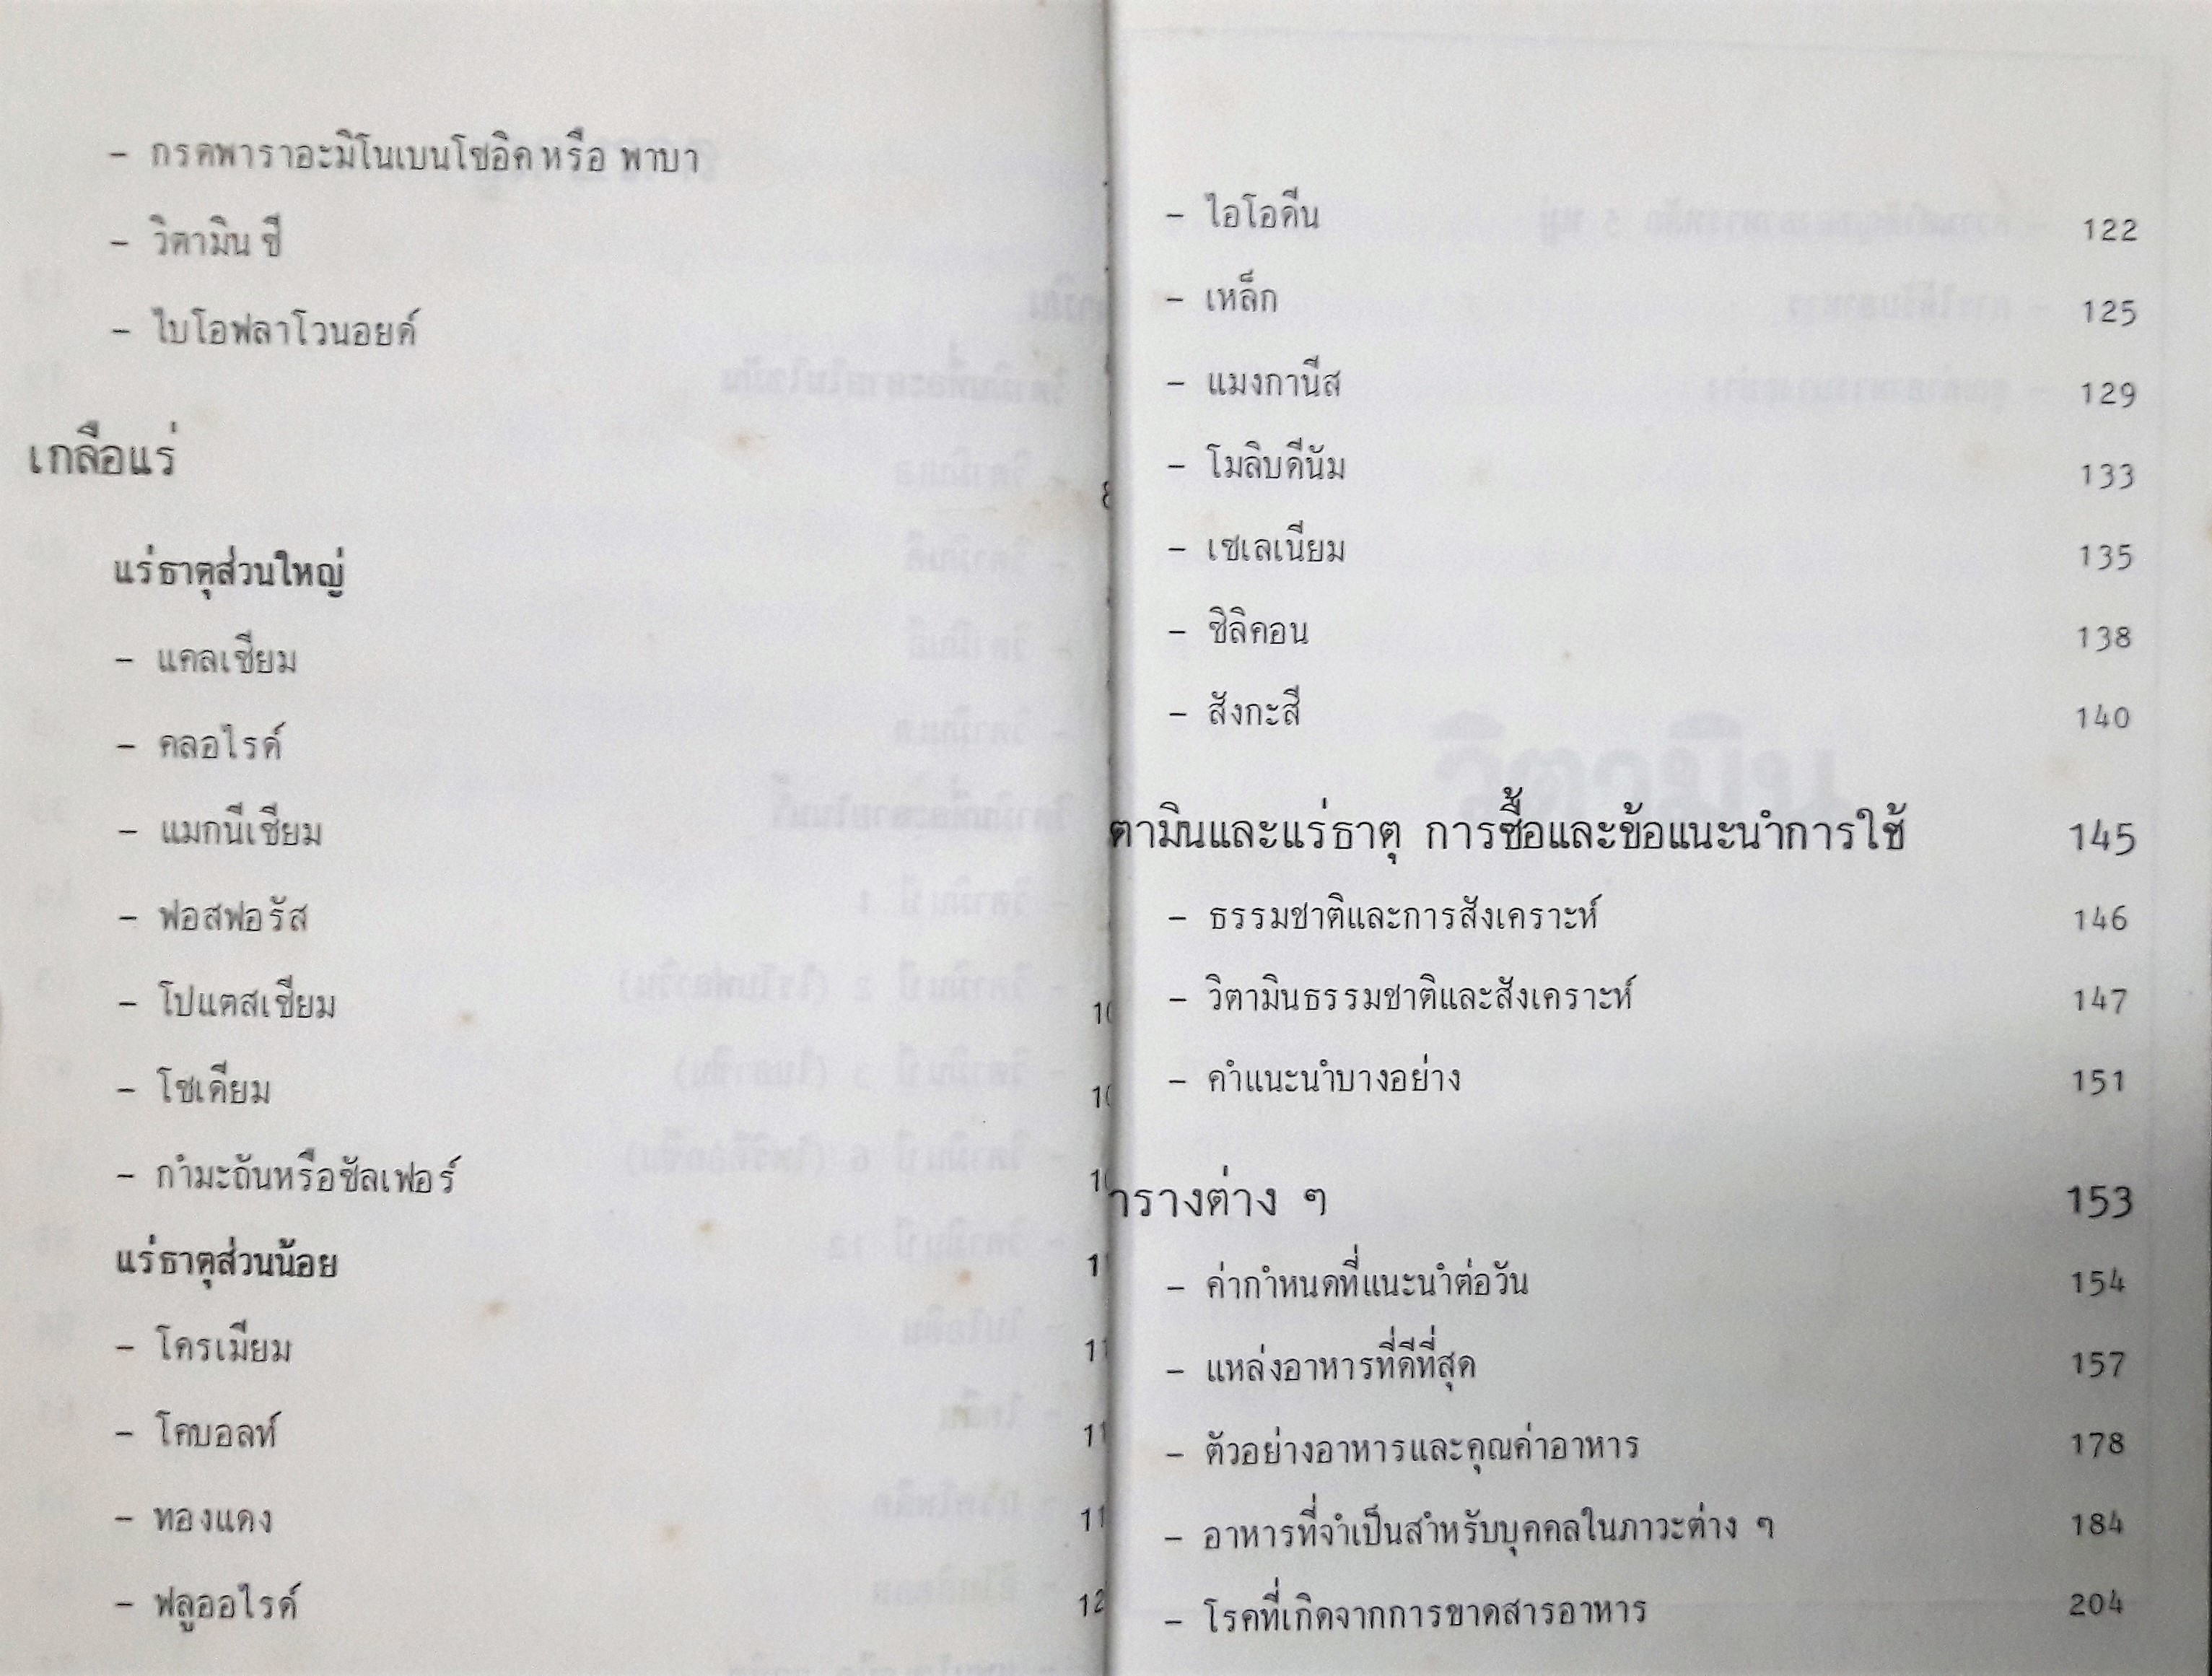 - กรดพาราอะมิโนเบนโซอิค หรือ พาบา
- วิตามิน ซี
- ไบโอฟลาโวนอยด์
เกลือแร่
แร่ธาตุส่วนใหญ่
- แคลเซียม
- คลอไรด์
- แมกนีเซียม
- ฟอสฟอรัส
- โปแตสเซียม
- โซเดียม
- กำมะถันหรือซัลเฟอร์
แร่ธาตุส่วนน้อย
- โครเมียม
- โคบอลท์
- ทองแดง
- ฟลูออไรด์
- ไอโอดีน 122
- เหล็ก 125
- แมงกานีส 129
- โมลิบดีนัม 133
- เซเลเนียม 135
- ซิลิคอน 138
- สังกะสี 140
ตามินและแร่ธาตุ การซื้อและข้อแนะนำการใช้ 145
- ธรรมชาติและการสังเคราะห์ 146
- วิตามินธรรมชาติและสังเคราะห์ 147
- คำแนะนำบางอย่าง 151
ารางต่าง ๆ 153
- ค่ากำหนดที่แนะนำต่อวัน 154
- แหล่งอาหารที่ดีที่สุด 157
- ตัวอย่างอาหารและคุณค่าอาหาร 178
- อาหารที่จำเป็นสำหรับบุคคลในภาวะต่าง ๆ 184
- โรคที่เกิดจากการขาดสารอาหาร 204